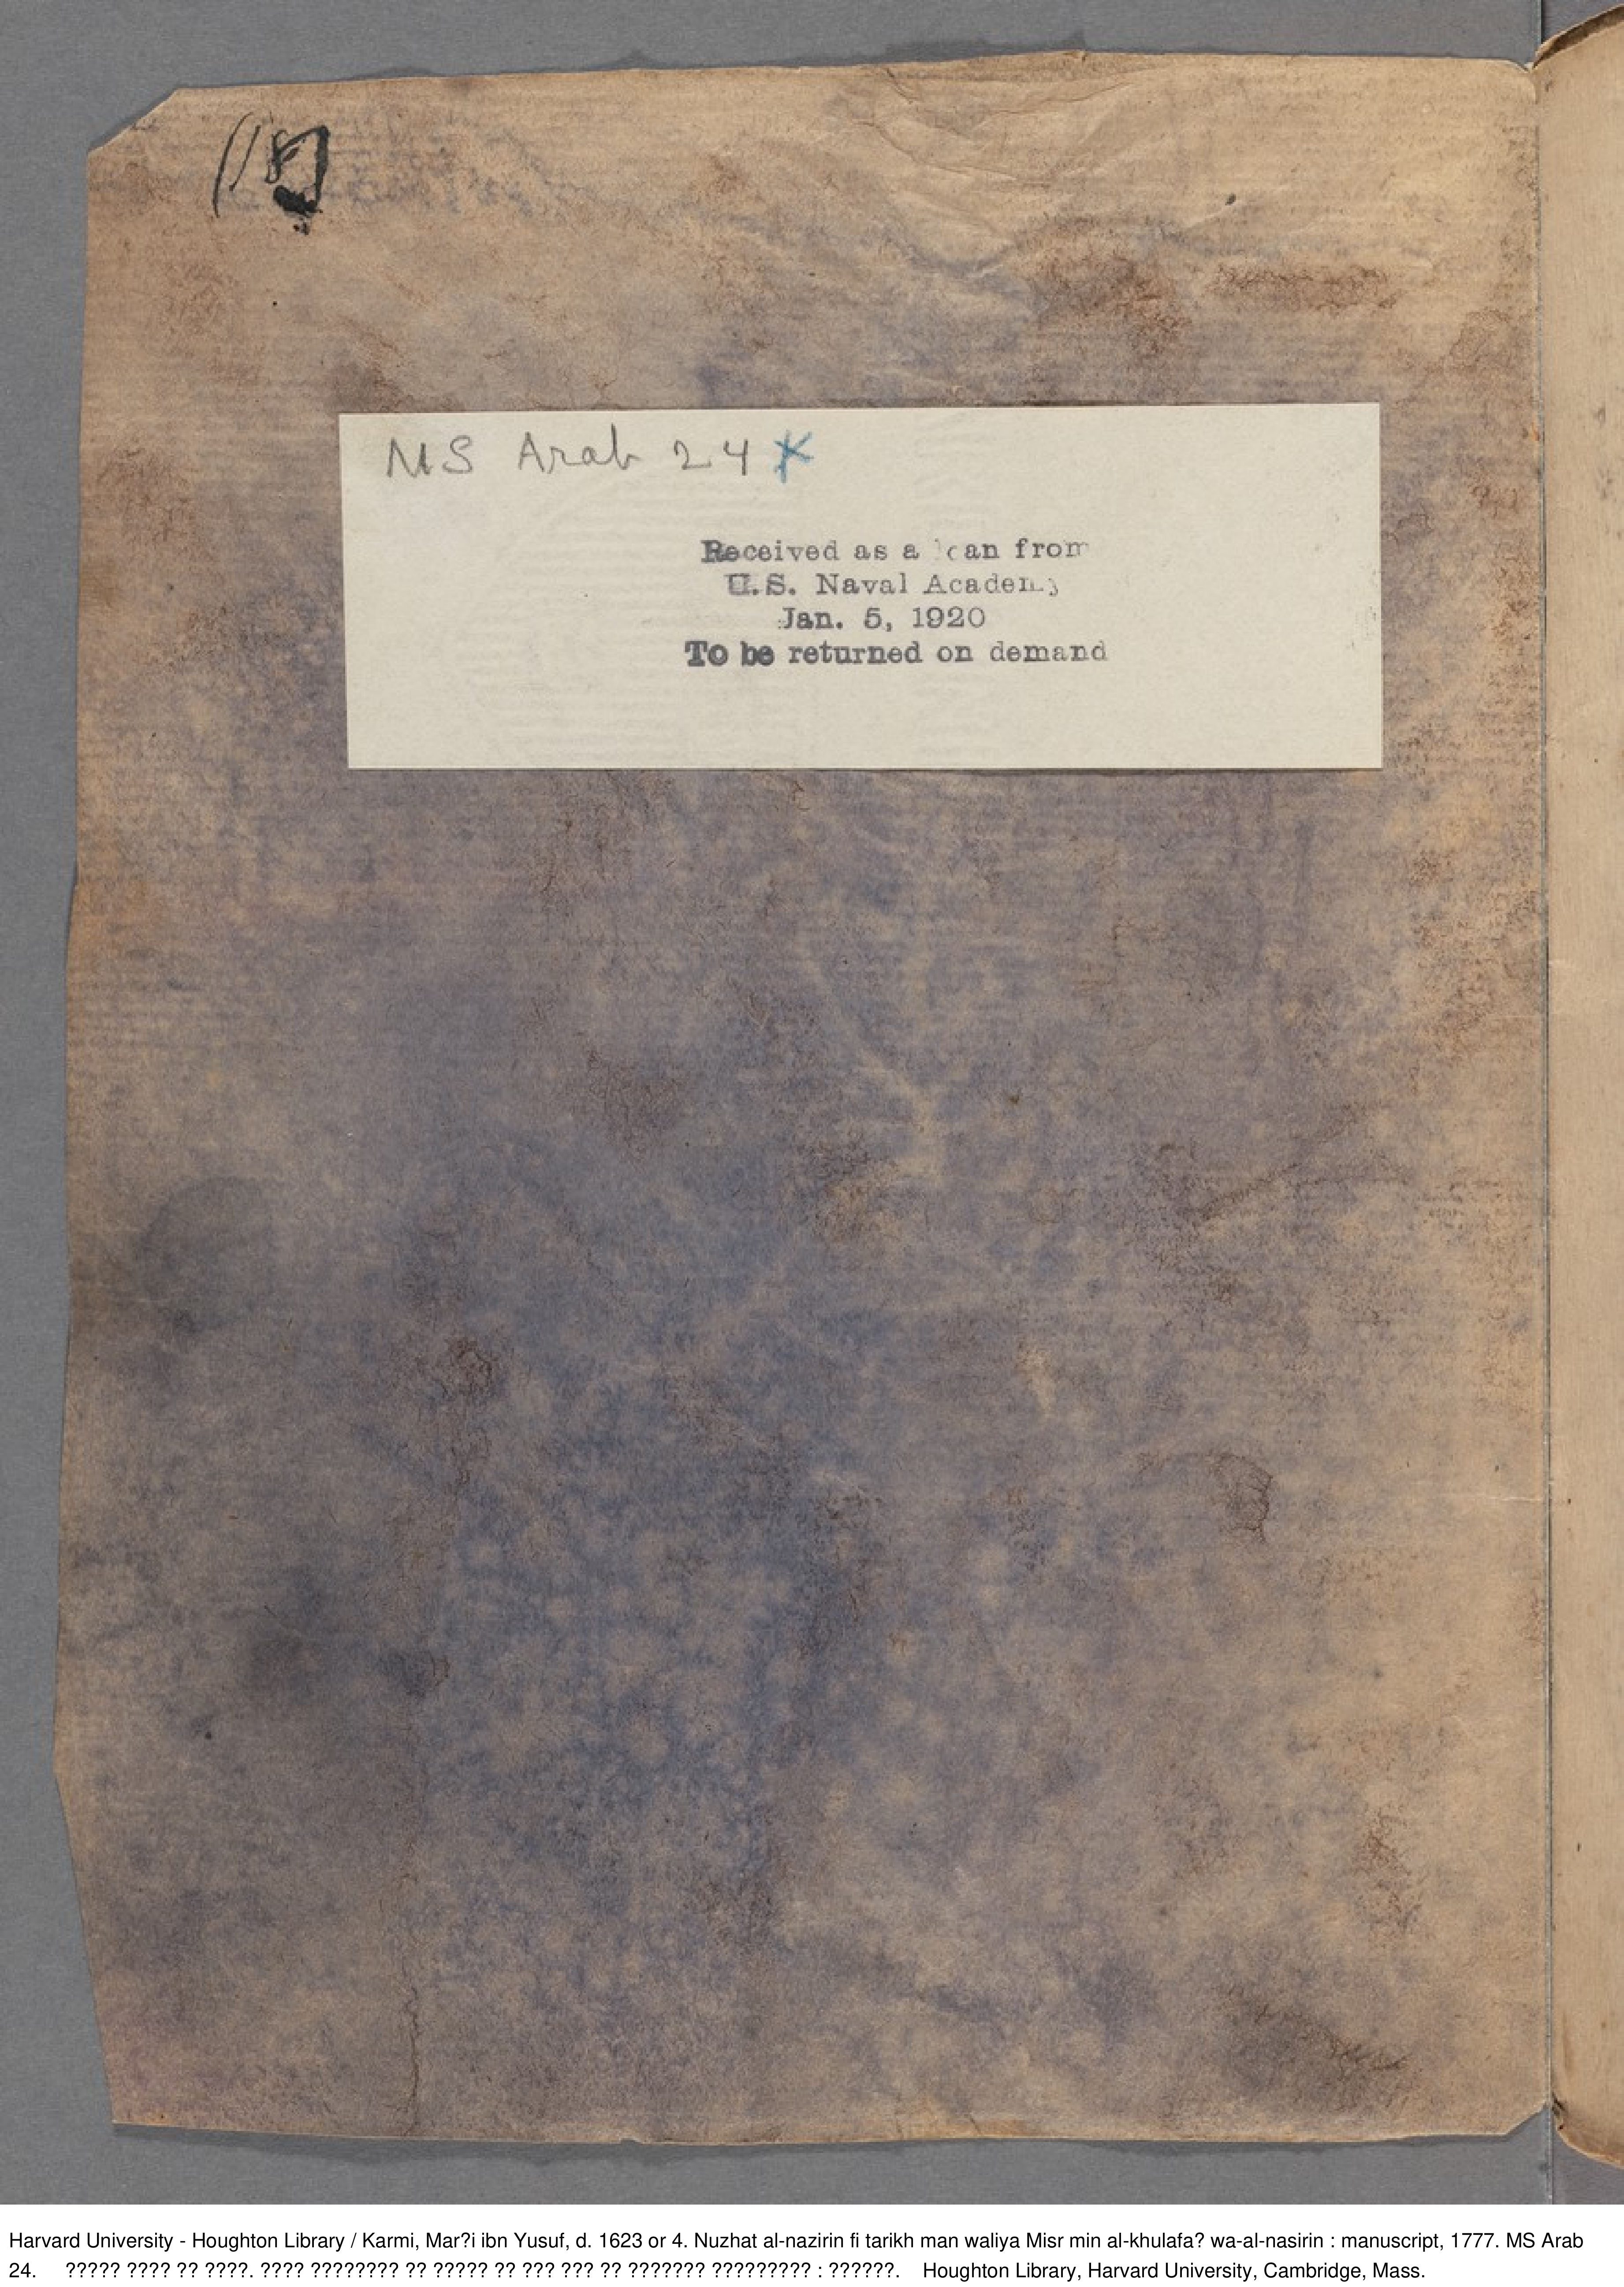 (18)
MS Arab 24 *
Received as a loan from
U.S. Naval Academy
Jan. 5, 1920
To be returned on demand
Harvard University - Houghton Library / Karmi, Mar?i ibn Yusuf, d. 1623 or 4. Nuzhat al-nazirin fi tarikh man waliya Misr min al-khulafa? wa-al-nasirin : manuscript, 1777. MS Arab
24. ????? ???? ?? ????. ???? ???????? ?? ????? ?? ??? ??? ?? ??????? ????????? : ??????. Houghton Library, Harvard University, Cambridge, Mass.